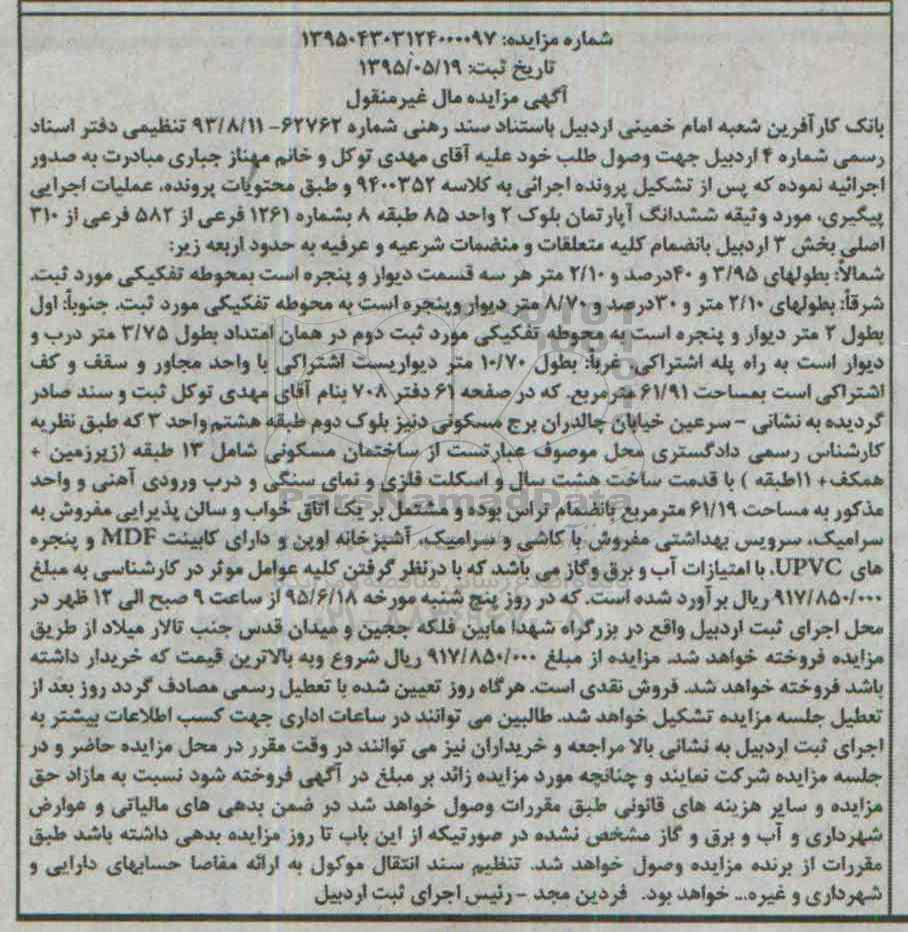 شماره مزایده: ۱۳۹۵۰۴۳۰۳۱۲۴۰۰۰۰۹۷
تاریخ ثبت: ۱۳۹۵/۰۵/۱۹
آگهی مزایده مال غیرمنقول
بانک کارآفرین شعبه امام خمینی اردبیل باستناد سند رهنی شماره ۶۲۷۶۲- ۹۳/۸/۱۱ تنظیمی دفتر اسناد
رسمی شماره ۴ اردبیل جهت وصول طلب خود علیه آقای مهدی توکل و خانم مهناز جباری مبادرت به صدور
اجرائیه نموده که پس از تشکیل پرونده اجرائی به کلاسه ۹۴۰۰۳۵۲ و طبق محتویات پرونده، عملیات اجرایی
پیگیری، مورد وثیقه ششدانگ آپارتمان بلوک ۲ واحد ۸۵ طبقه ۸ بشماره ۱۲۶۱ فرعی از ۵۸۲ فرعی از ۳۱۰
اصلی بخش ۳ اردبیل بانضمام کلیه متعلقات و منضمات شرعیه و عرفیه به حدود اربعه زیر:
شمالاً: بطولهای ۳/۹۵ و ۴۰درصد و ۲/۱۰ متر هر سه قسمت دیوار و پنجره است بمحوطه تفکیکی مورد ثبت.
شرقاً: بطولهای ۲/۱۰ متر و ۳۰درصد و ۸/۷۰ متر دیوار وپنجره است به محوطه تفکیکی مورد ثبت. جنوباً: اول
بطول ۲ متر دیوار و پنجره است به محوطه تفکیکی مورد ثبت دوم در همان امتداد بطول ۳/۷۵ متر درب و
دیوار است به راه پله اشتراکی، غرباً: بطول ۱۰/۷۰ متر دیواریست اشتراکی با واحد مجاور و سقف و کف
اشتراکی است بمساحت ۶۱/۹۱ مترمربع. که در صفحه ۶۱ دفتر ۷۰۸ بنام آقای مهدی توکل ثبت و سند صادر
گردیده به نشانی - سرعین خیابان چالدران برج مسکونی دنیز بلوک دوم طبقه هشتم واحد ۳ که طبق نظریه
کارشناس رسمی دادگستری محل موصوف عبارتست از ساختمان مسکونی شامل ۱۳ طبقه (زیرزمین +
همکف+ ۱۱طبقه ) با قدمت ساخت هشت سال و اسکلت فلزی و نمای سنگی و درب ورودی آهنی و واحد
مذکور به مساحت ۶۱/۱۹ مترمربع بانضمام تراس بوده و مشتمل بر یک اتاق خواب و سالن پذیرایی مفروش به
سرامیک، سرویس بهداشتی مفروش با کاشی و سرامیک، آشپزخانه اوپن و دارای کابینت MDF و پنجره
های UPVC. با امتیازات آب و برق وگاز می باشد که با درنظر گرفتن کلیه عوامل موثر در کارشناسی به مبلغ
۹۱۷/۸۵۰/۰۰۰ ریال برآورد شده است. که در روز پنج شنبه مورخه ۹۵/۶/۱۸ از ساعت ۹ صبح الی ۱۲ ظهر در
محل اجرای ثبت اردبیل واقع در بزرگراه شهدا مابین فلکه ججین و میدان قدس جنب تالار میلاد از طریق
مزایده فروخته خواهد شد. مزایده از مبلغ ۹۱۷/۸۵۰/۰۰۰ ریال شروع وبه بالاترین قیمت که خریدار داشته
باشد فروخته خواهد شد. فروش نقدی است. هرگاه روز تعیین شده با تعطیل رسمی مصادف گردد روز بعد از
تعطیل جلسه مزایده تشکیل خواهد شد. طالبین می توانند در ساعات اداری جهت کسب اطلاعات بیشتر به
اجرای ثبت اردبیل به نشانی بالا مراجعه و خریداران نیز می توانند در وقت مقرر در محل مزایده حاضر و در
جلسه مزایده شرکت نمایند و چنانچه مورد مزایده زائد بر مبلغ در آگهی فروخته شود نسبت به مازاد حق
مزایده و سایر هزینه های قانونی طبق مقررات وصول خواهد شد در ضمن بدهی های مالیاتی و عوارض
شهرداری و آب و برق و گاز مشخص نشده در صورتیکه از این باب تا روز مزایده بدهی داشته باشد طبق
مقررات از برنده مزایده وصول خواهد شد. تنظیم سند انتقال موکول به ارائه مفاصا حسابهای دارایی و
شهرداری و غیره... خواهد بود. فردین مجد - رئیس اجرای ثبت اردبیل
ParsNamadData